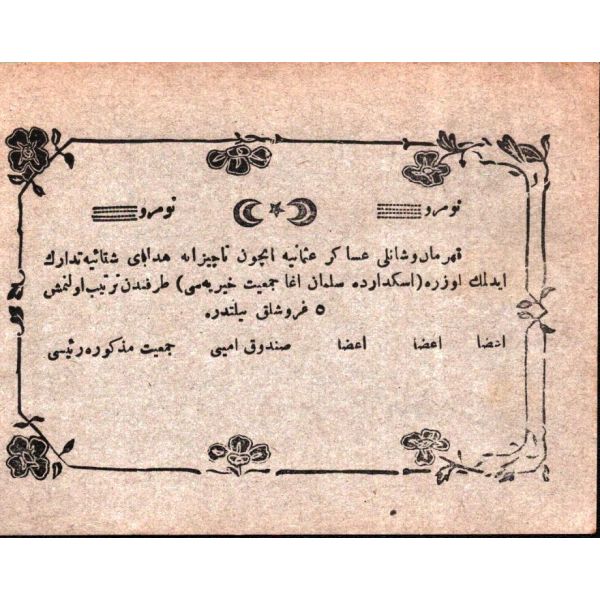 نومرو نومرو
قهرمان وشانلی عساکر عثمانیه ایچون ناچیزانه هدایای شتائیه تدارك
ایدلمك اوزره (اسکدارده سلمان اغا جمعیت خیریه‌سی) طرفندن ترتیب اولنمش
٥ غروشلق بیلتدر
اعضا اعضا اعضا صندوق امینی جمعیت مذکوره رئیسی